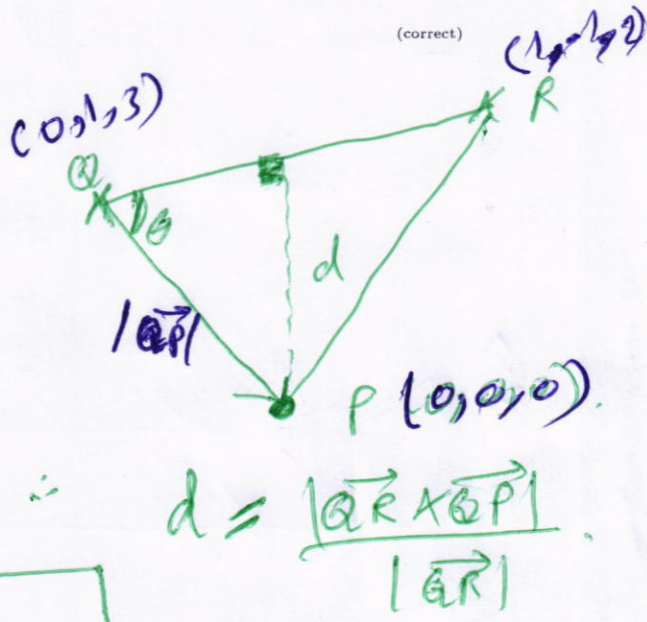 (correct)
(1,-1,2)
R
(0,1,3)
Q
θ
d
|QP|
P (0,0,0).
∴ d = |QR × QP| / |QR| .